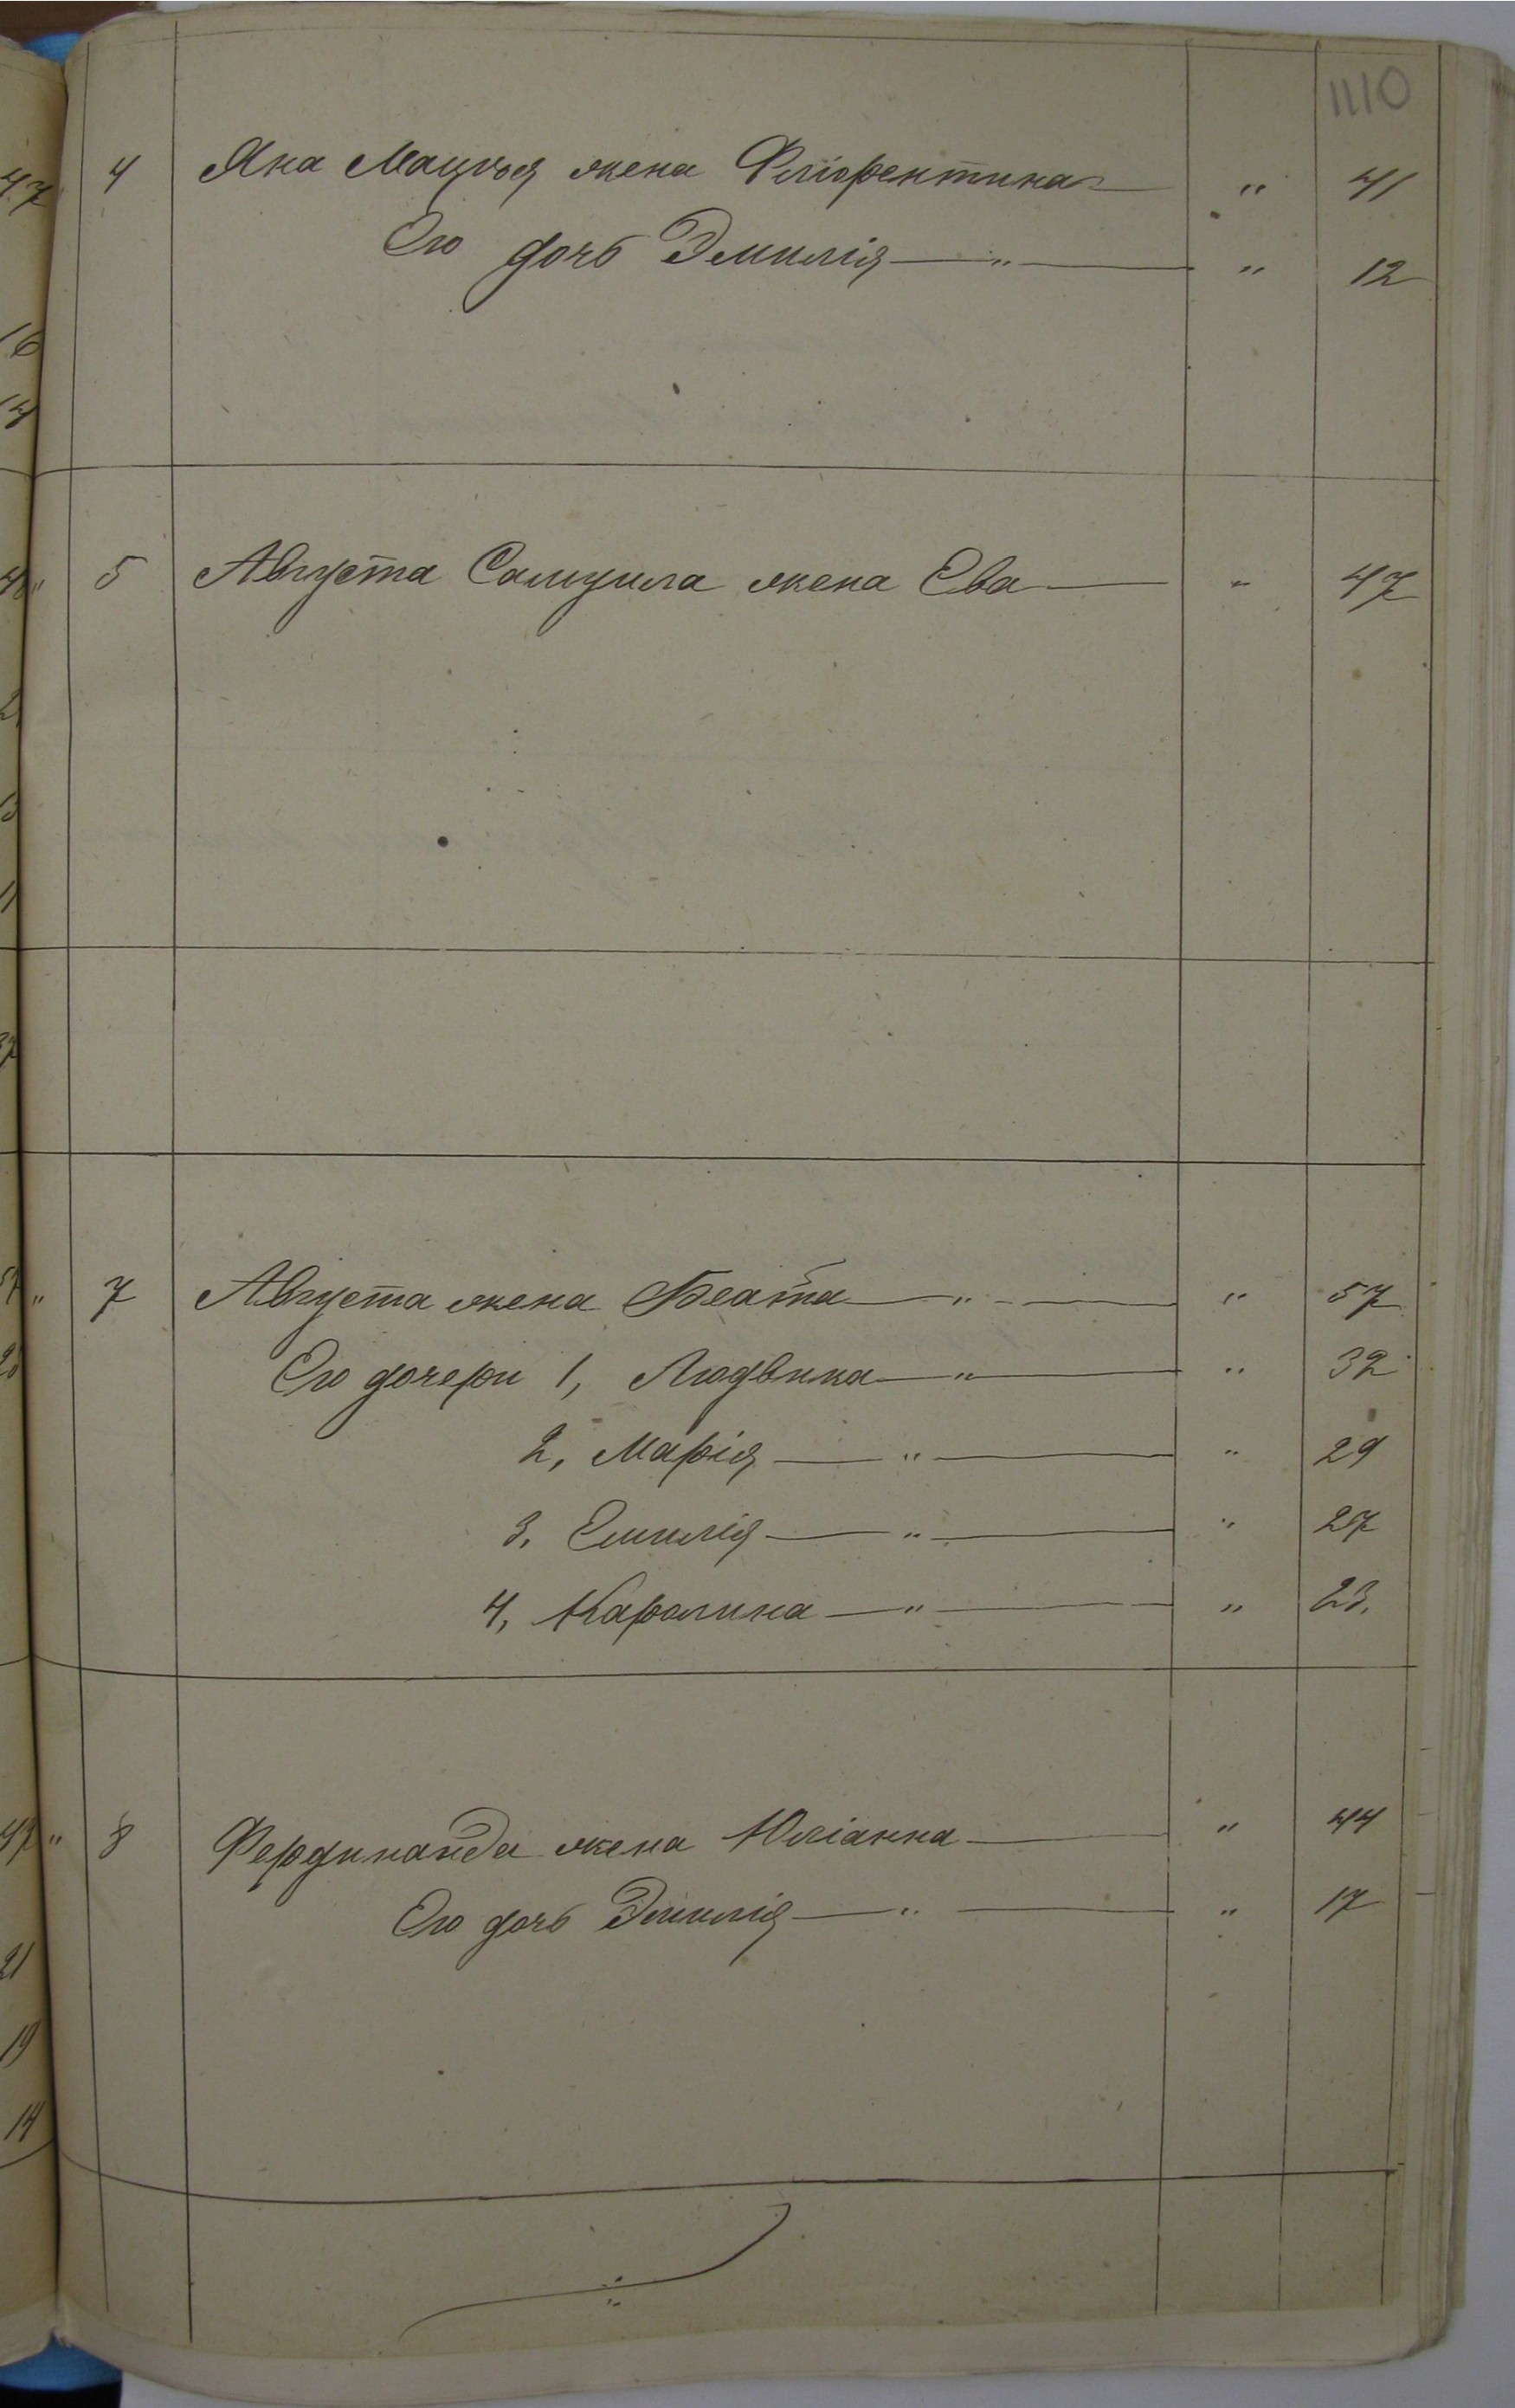 1110
4 Яна Мацѣя жена Флiорентина — " 41
Его дочь Эмилія — " — " 12
5 Августа Самуила жена Ева — " 47
7 Августа жена Беата — " — " 57
Его дочери 1, Людвика — " — " 32
2, Марія — " — " 29
3, Емилія — " — " 27
4, Каролина — " — " 23.
8 Фердинанда жена Юліанна — " 44
Его дочь Эмилія — " — " 17